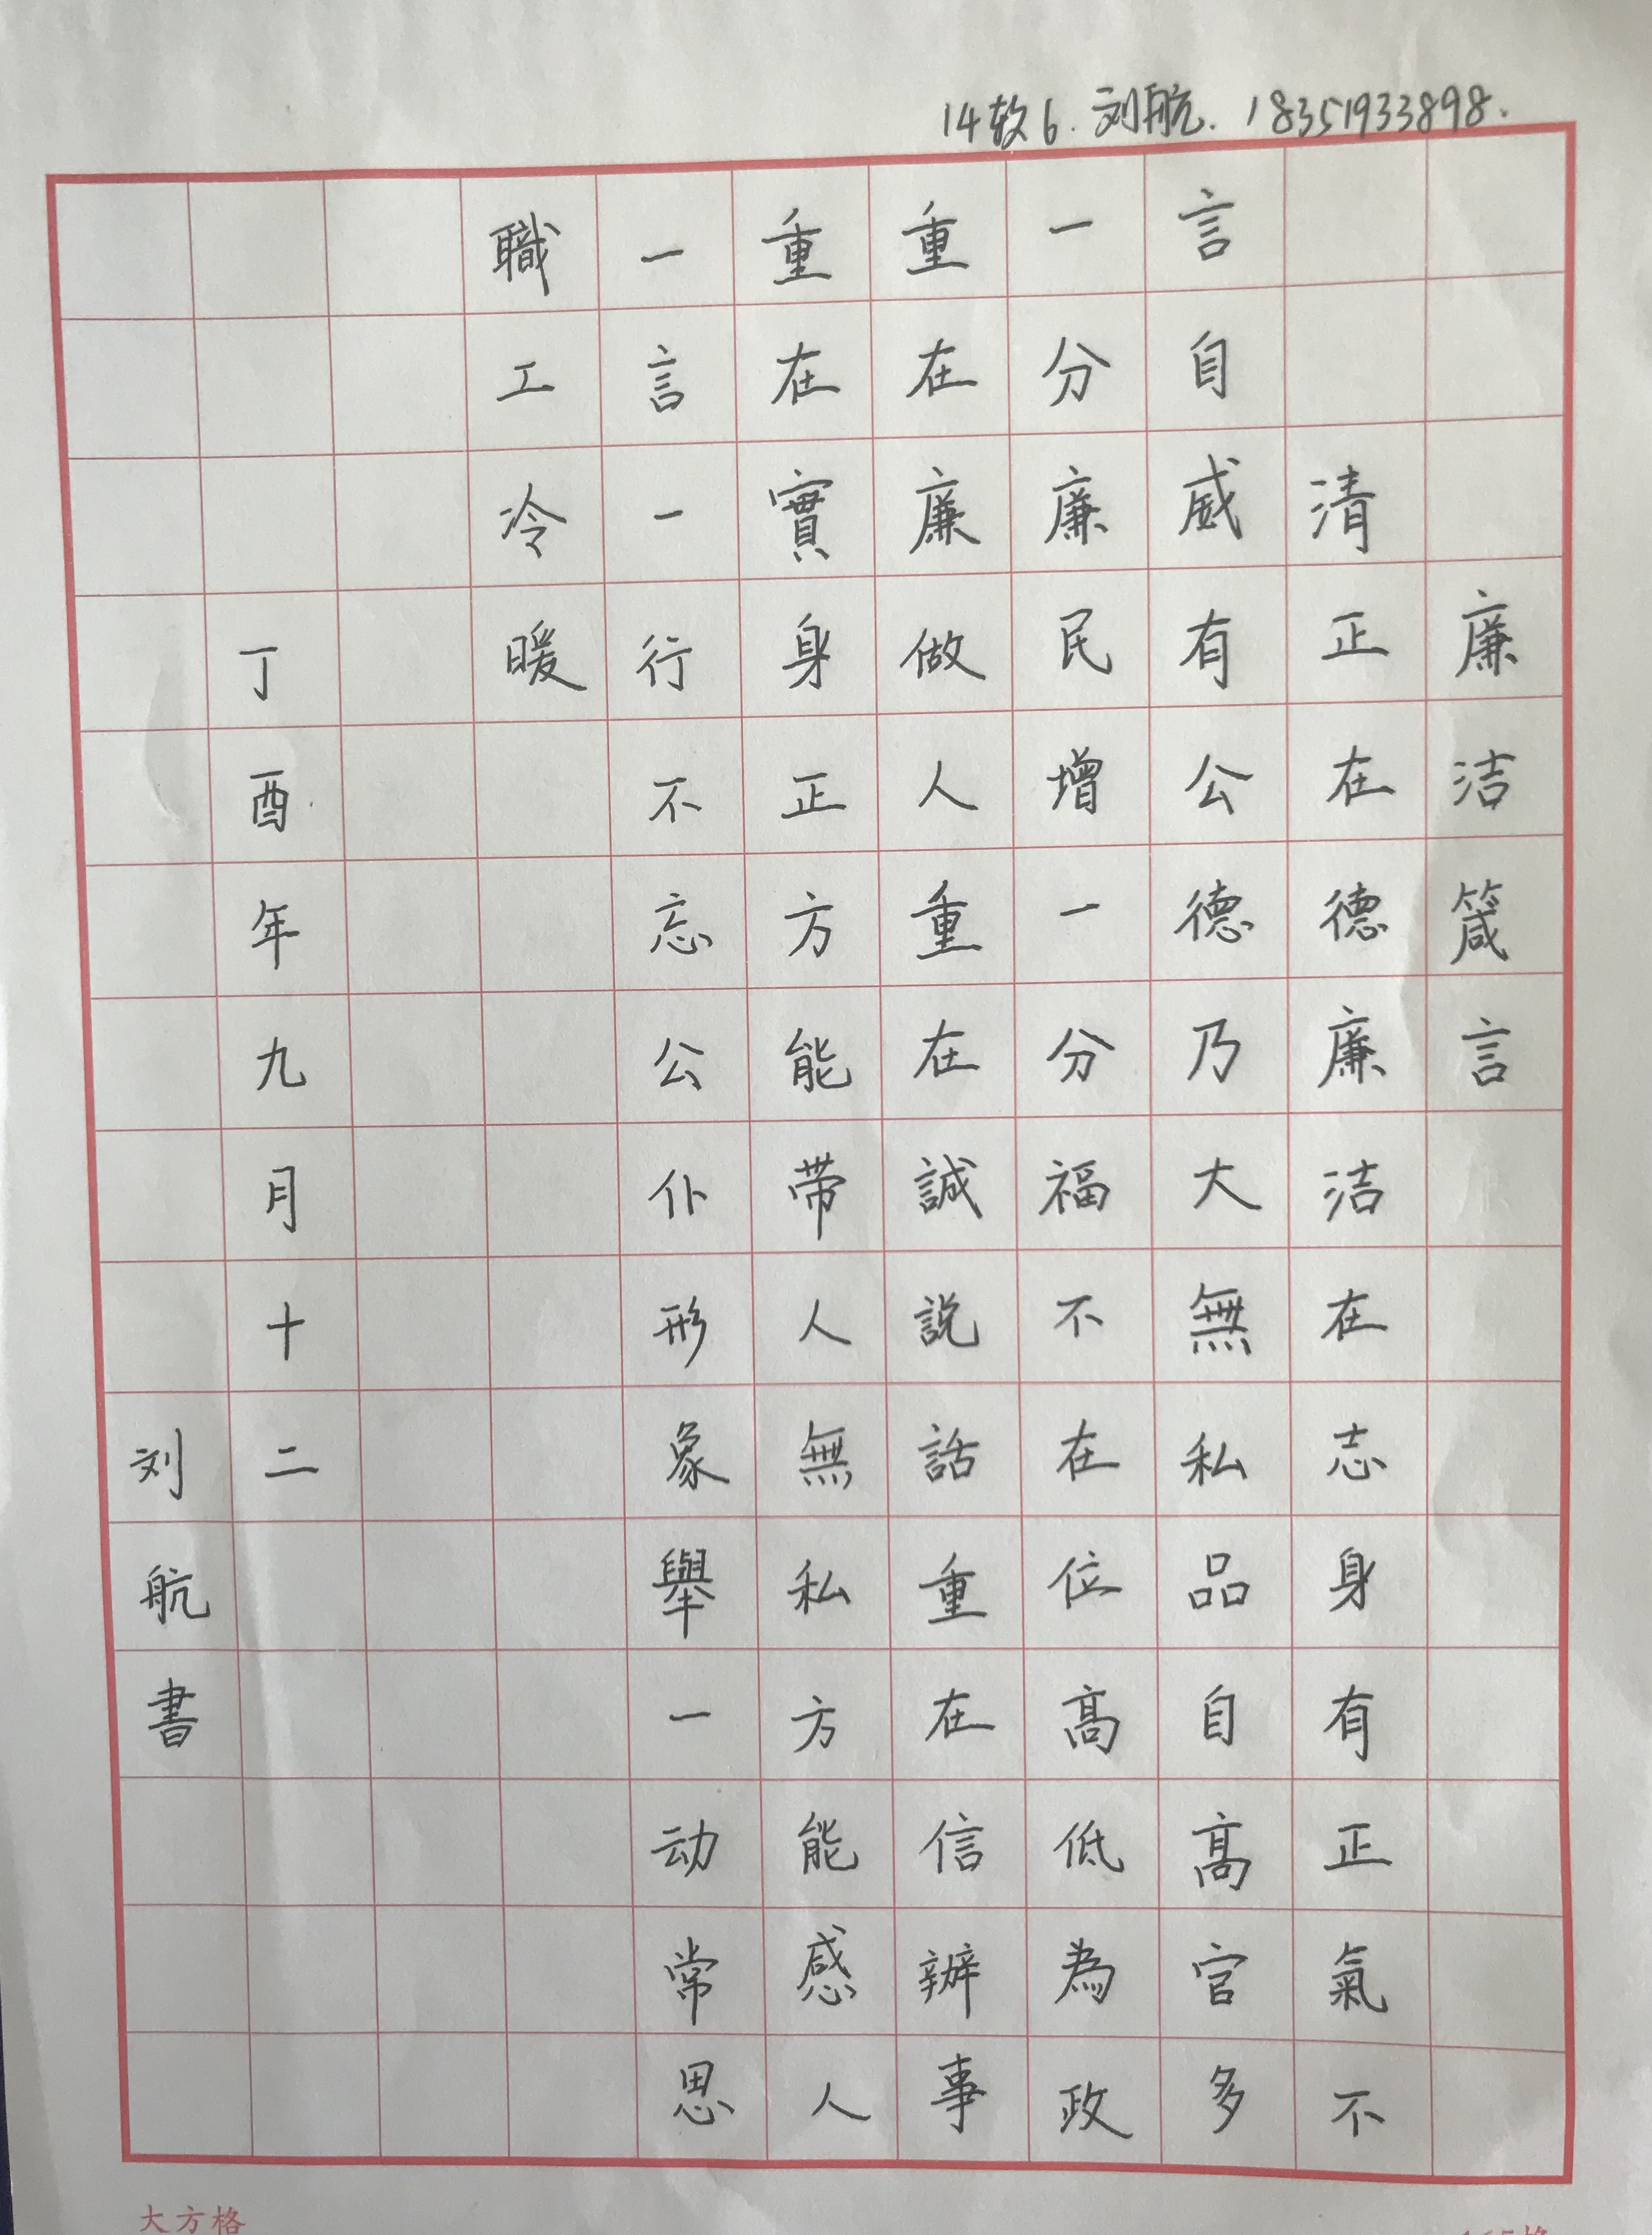 14软6.刘航.18351933898.
廉洁箴言
清正在德廉洁在志身有正氣不
言自威有公德乃大無私品自高官多
一分廉民增一分福不在位高低為政
重在廉做人重在誠説話重在信辦事
重在實身正方能带人無私方能感人
一言一行不忘公仆形象舉一动常思
職工冷暖
丁酉年九月十二
刘航書
大方格